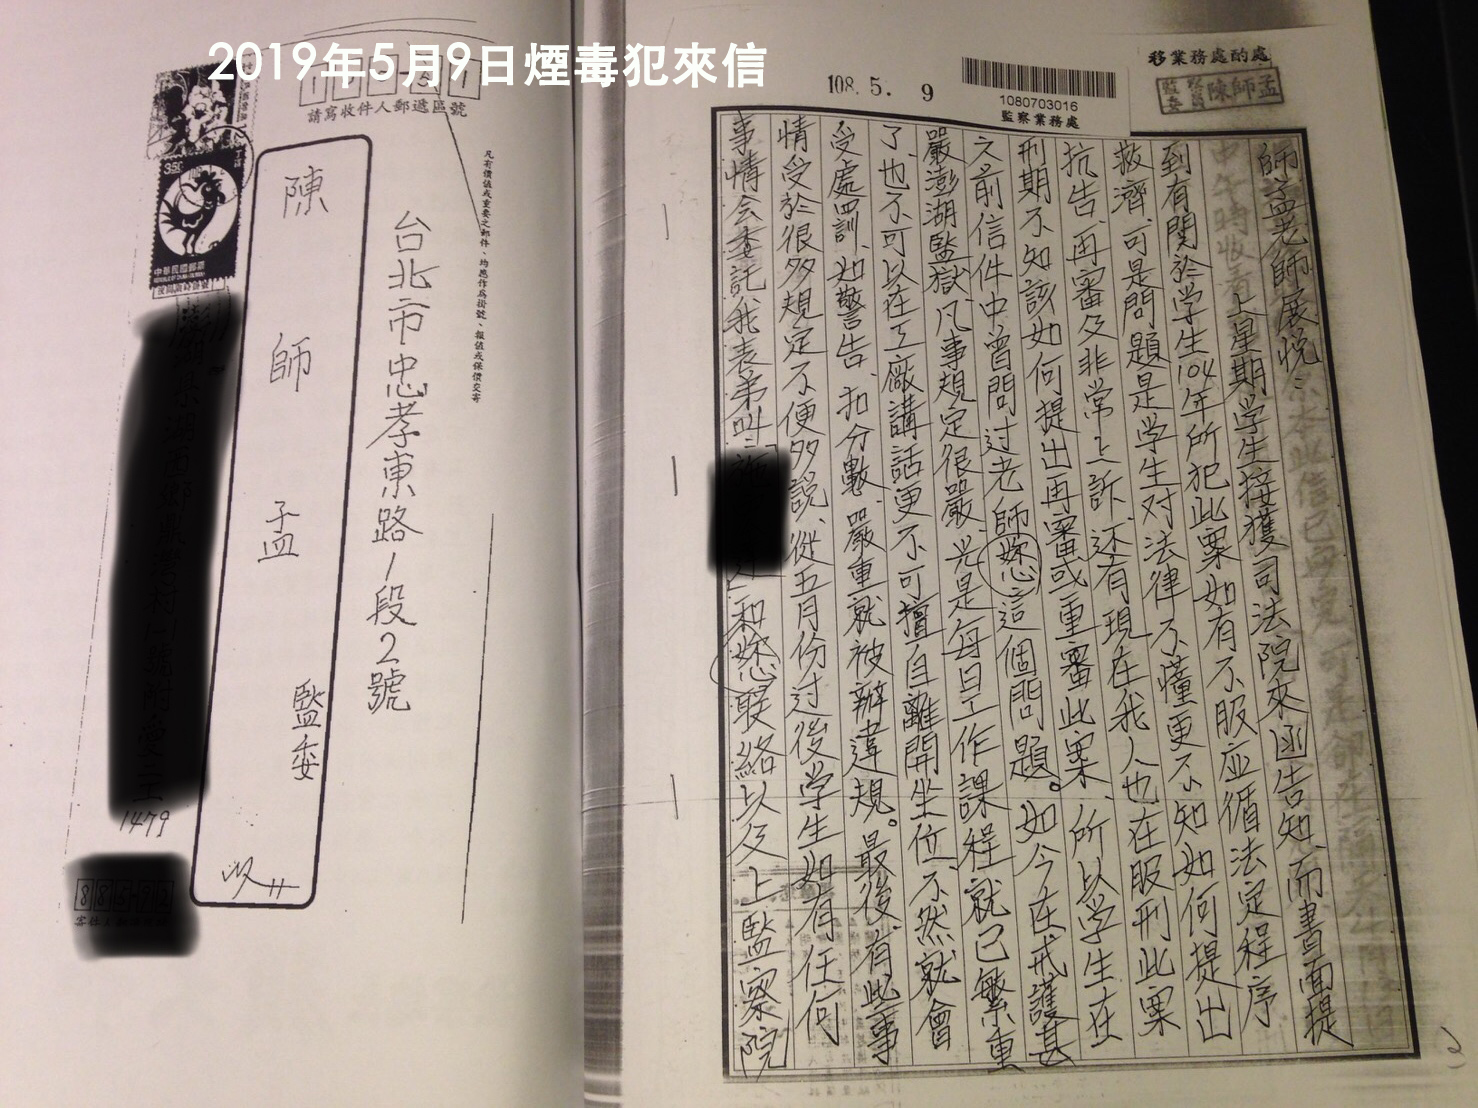 2019年5月9日煙毒犯來信
請寫收件人郵遞區號
凡有價值或重要之郵件、均應作為掛號、報值或保價交寄
台北市忠孝東路1段2號
陳師孟 監委
中華民國郵票
1479
108.5.9
1080703016
監察業務處
移業務處酌處
監察委員 陳師孟
師孟老師展悅:
上星期學生接獲司法院來函告知,而書面提
到有関於学生104年所犯此案如有不服应循法定程序
救濟,可是問題是学生对法律不懂更不知如何提出
抗告、再審及非常上訴,还有現在我人也在服刑此案
刑期不知該如何提出再審或重審此案,所以学生在
之前信件中曾問过老師您這個問題。如今在戒護甚
嚴澎湖監獄,凡事規定很嚴,光是每日工作課程就已繁重
了,也不可以在工廠講話更不可擅自離開坐位,不然就會
受處罰,如警告、扣分數,嚴重就被辦違規。最後,有此事
情受於很多規定不便多說,從五月份过後学生如有任何
事情会委託我表弟叫:
和您联絡以及上監察院